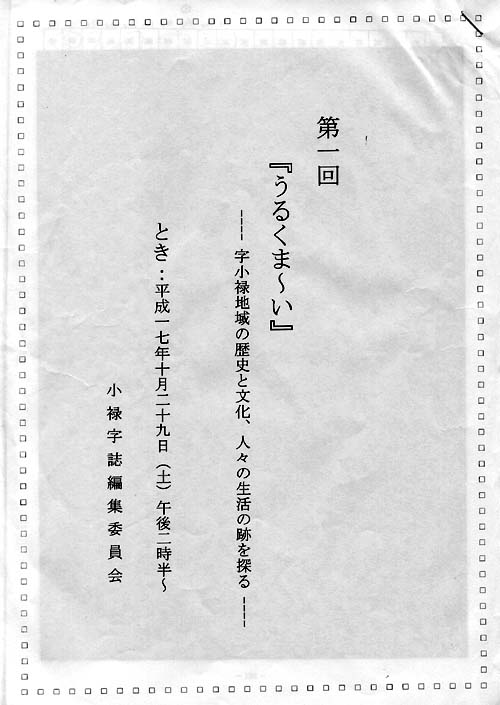 第一回
『うるくま～い』
---- 字小禄地域の歴史と文化、人々の生活の跡を探る ----
とき：平成一七年十月二十九日（土）午後二時半～
小禄字誌編集委員会